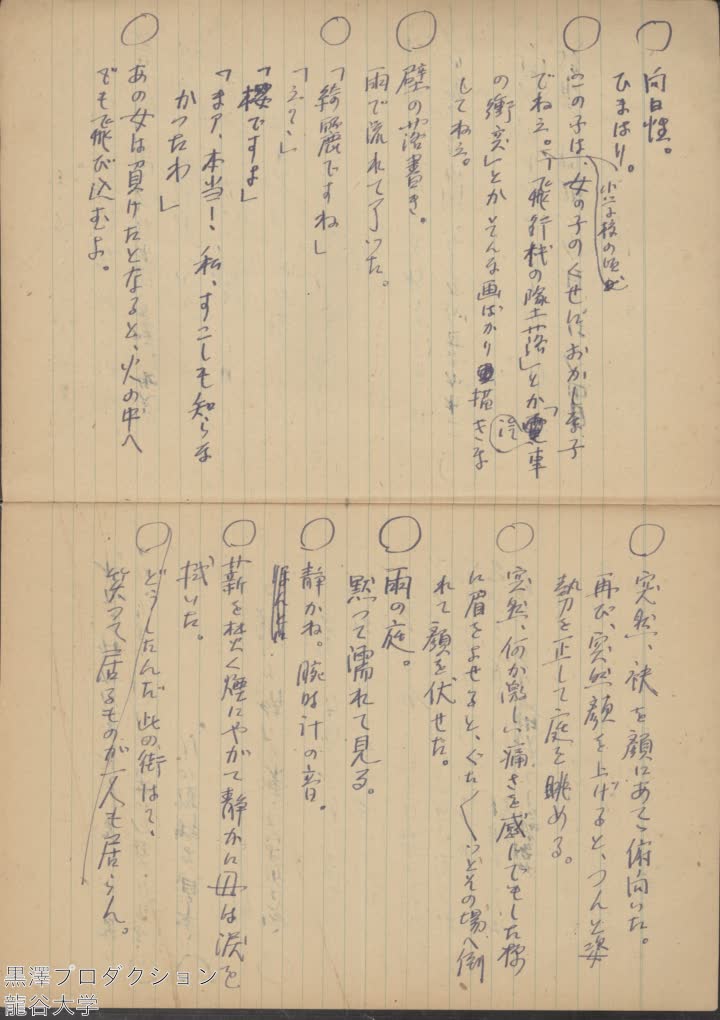 ○
向日性。
ひまはり。
○
この子は、女の子のくせにおかしな子
でねえ。小学校の頃
「飛行機の墜落」とか「汽車
の衝突」とかそんな画ばかり描きま
してねえ。
○
壁の落書き。
雨で流れて了いた。
○
「綺麗ですね」
「えゝ」
「櫻ですよ」
「まア、本当！、私、すこしも知らな
かつたわ」
○
あの女は負けたとなると、火の中へ
でも飛び込むよ。
○
突然、袂を顔にあてゝ俯向いた。
再び、突然顔を上げると、つんと姿
勢を正して庭を眺める。
○
突然、何か激しい痛さを感じでもした様
に眉をよせると、ぐた〱とその場へ倒
れて顔を伏せた。
○
雨の庭。
黙つて濡れて見る。
○
静かね。腕時計の音。
○
薪を焚く煙にやがて静かに母は涙を
拭いた。
○
どうしたんだ此の街はて、
笑つて、居るものが一人も居らん。
黒澤プロダクション
龍谷大学